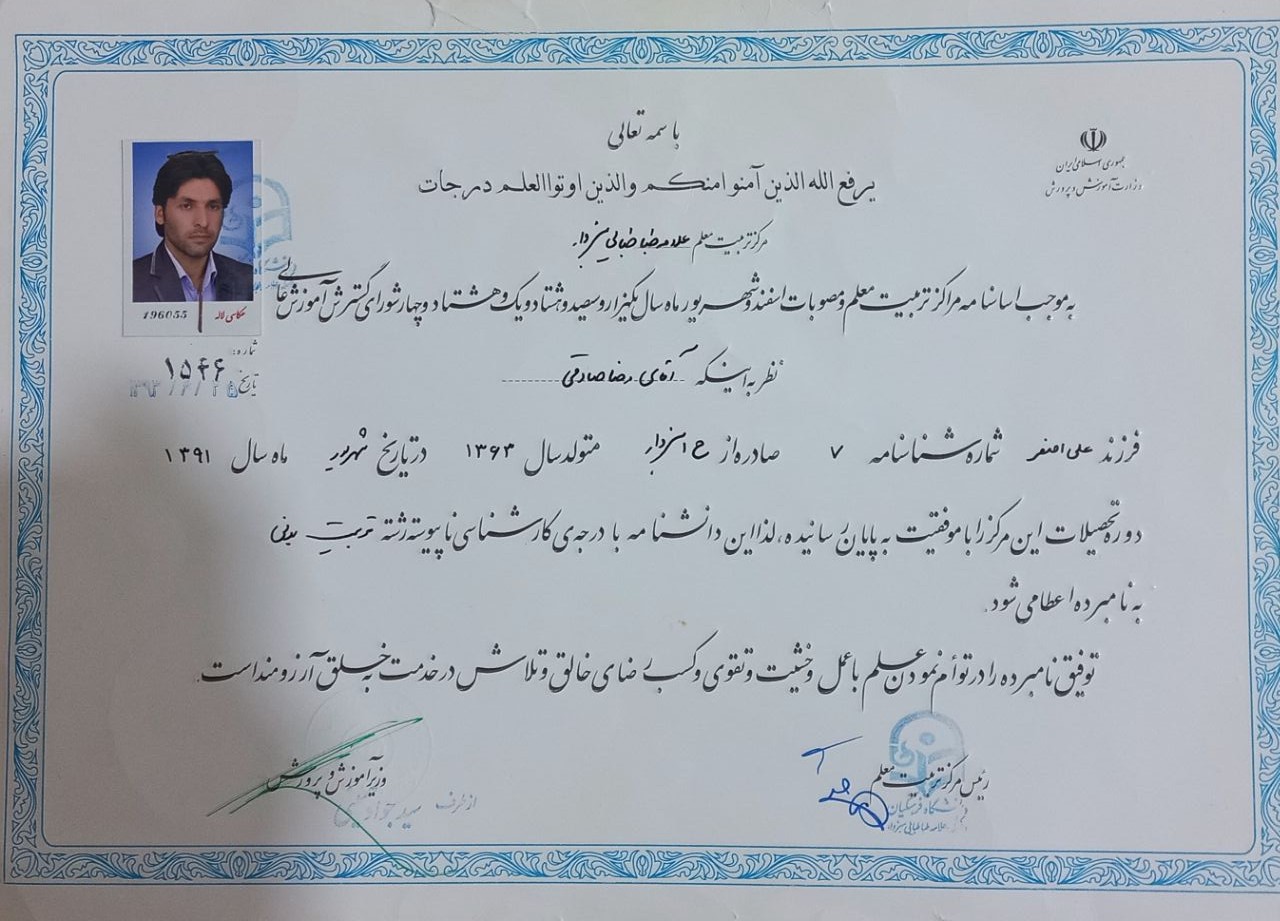 باسمه تعالی
جمهوری اسلامی ایران
وزارت آموزش و پرورش
یرفع الله الذین آمنو امنکم والذین اوتواالعلم درجات
مرکز تربیت معلم علامه طباطبائی سبزوار
به موجب اساسنامه مراکز تربیت معلم و مصوبات اسفند و شهریور ماه سال یکهزار و سیصد و هشتاد و یک و هشتاد و چهار شورای گسترش آموزش عالی
196055 عکاسی لاله
شماره: ۱۵۴۶
تاریخ
نظر به اینکه آقای رضا صادقی
فرزند علی اصغر شماره شناسنامه ۷ صادره از ح ۱ سبزوار متولد سال ۱۳۶۳ در تاریخ شهریور ماه سال ۱۳۹۱
دوره تحصیلات این مرکز را با موفقیت به پایان رسانیده، لذا این دانشنامه با درجه‌ی کارشناسی ناپیوسته رشته تربیت بدنی
به نامبرده اعطا می شود.
توفیق نامبرده را در توأم نمودن علم با عمل و خشیت و تقوی و کسب رضای خالق و تلاش در خدمت به خلق آرزومند است.
رئیس مرکز تربیت معلم
دانشگاه فرهنگیان
علامه طباطبایی سبزوار
وزیر آموزش و پرورش
از طرف سید جواد